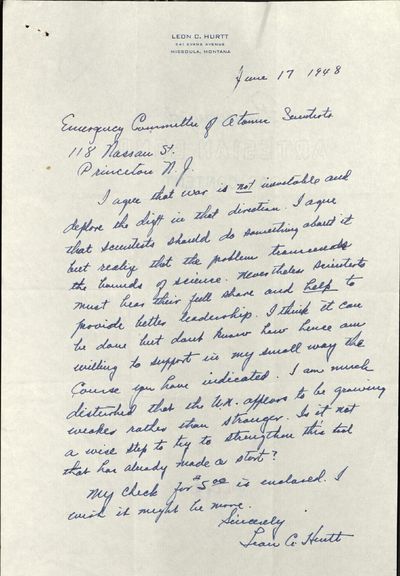 LEON C. HURTT
641 EVANS AVENUE
MISSOULA, MONTANA
June 17 1948
Emergency Committee of Atomic Scientists
118 Nassau St.
Princeton N.J.
I agree that war is not inevitable and
deplore the drift in that direction. I agree
that scientists should do something about it
but realize that the problem transcends
the bounds of science. Nevertheless scientists
must bear their full share and help to
provide better leadership. I think it can
be done but don't know how hence am
willing to support in my small way the
Course you have indicated. I am much
disturbed that the U.N. appears to be growing
weaker rather than stronger. Is it not
a wise step to try to strengthen this tool
that has already made a start?
My check for $5 00 is enclosed. I
wish it might be more.
Sincerely
Leon C. Hurtt